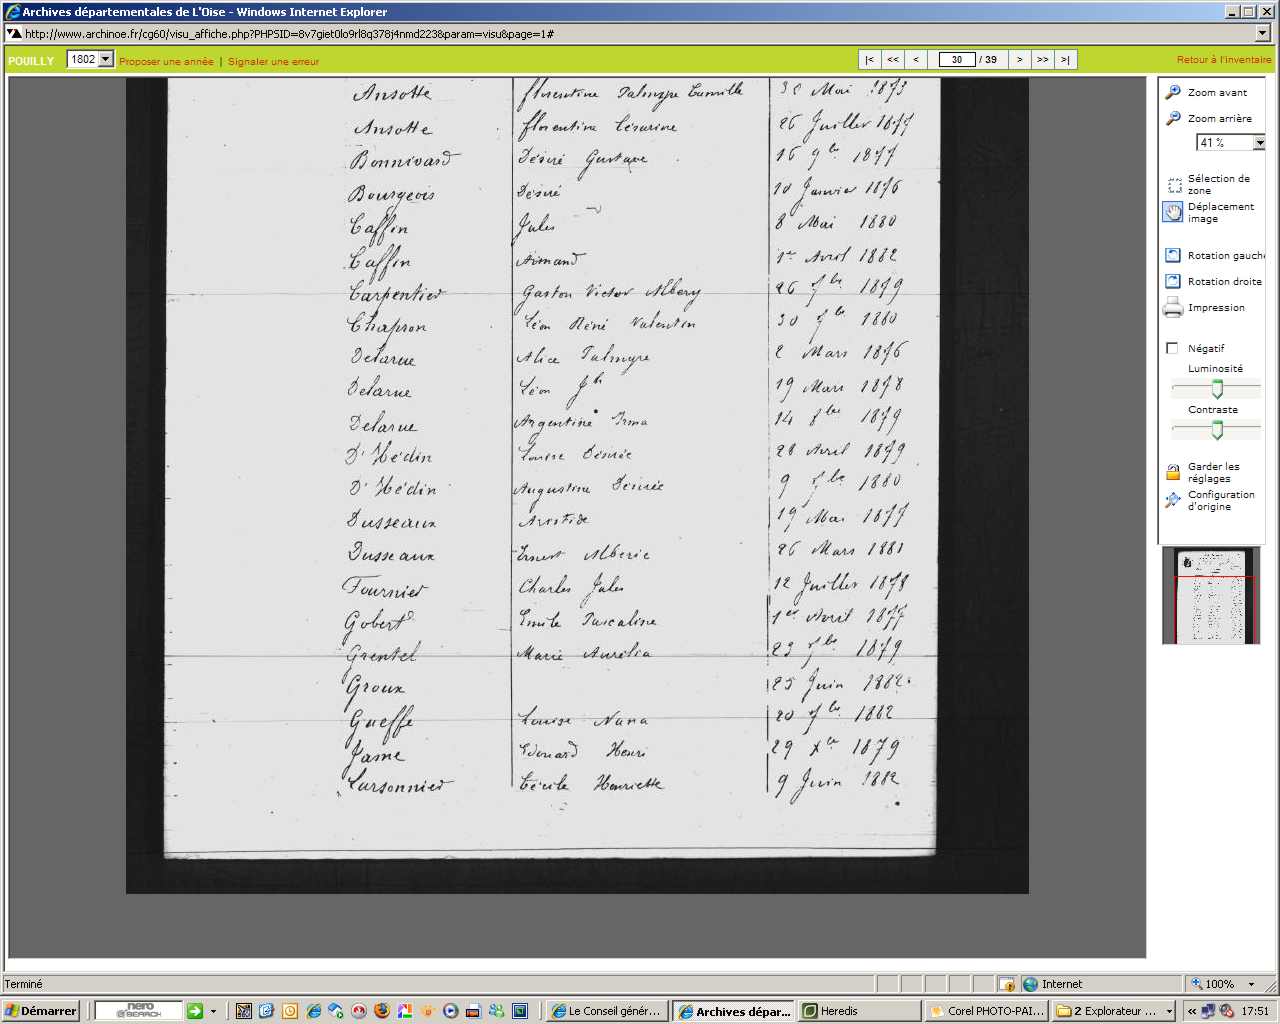 Archives départementales de L'Oise - Windows Internet Explorer
http://www.archinoe.fr/cg60/visu_affiche.php?PHPSID=8v7giet0lo9rl8q378j4nmd223&param=visu&page=1#
POUILLY 1802 Proposer une année | Signaler une erreur |< << < 30 / 39 > >> >| Retour à l'inventaire
Ansotte florentine Palmyre Camille 30 Mai 1873
Ansotte florentine Césarine 26 Juillet 1877
Bonnivard Désiré Gustave 16 9bre 1877
Bourgeois Désiré 10 Janvier 1876
Caffin Jules 8 Mai 1880
Caffin Armand 1er Avril 1882
Carpentier Gaston Victor Albery 26 1879
Chapron Léon Réné Valentin 30 1880
Delarue Alice Palmyre 2 Mars 1876
Delarue Léon Jh 19 Mars 1878
Delarue Argentine Irma 14 8bre 1879
D'Hédin Louise Désirée 28 Avril 1879
D'Hédin Augustine Désirée 9 1880
Dusseaux Aristide 19 Mai 1877
Dusseaux Ernest Alberic 26 Mars 1881
Fournier Charles Jules 12 Juillet 1878
Gobert Emile Pascaline 1er Avril 1877
Grentel Marie Aurélia 23 1879
Groux 25 Juin 1882
Gueffe Louise Nana 20 1882
Jame Edouard Henri 29 Xbre 1879
Larsonnier Cécile Henriette 9 Juin 1882
Zoom avant
Zoom arrière
41 %
Sélection de
zone
Déplacement
image
Rotation gauche
Rotation droite
Impression
Négatif
Luminosité
Contraste
Garder les
réglages
Configuration
d'origine
Terminé Internet 100%
Démarrer nero SEARCH Le Conseil génér... Archives dépar... Heredis Corel PHOTO-PAI... 2 Explorateur ... « 17:51